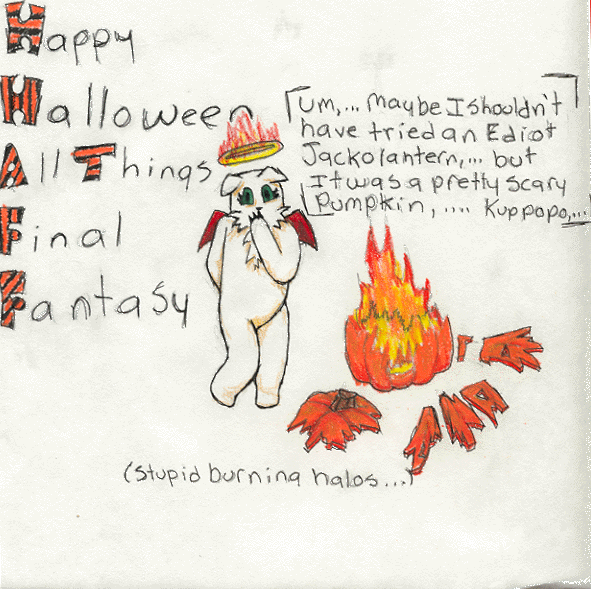 Happy
Halloween
All Things
Final
Fantasy
Um,... Maybe I shouldn't
have tried an Ediot
Jackolantern,... but
It was a pretty scary
Pumpkin, .... Kuppopo,...
(Stupid burning halos...)